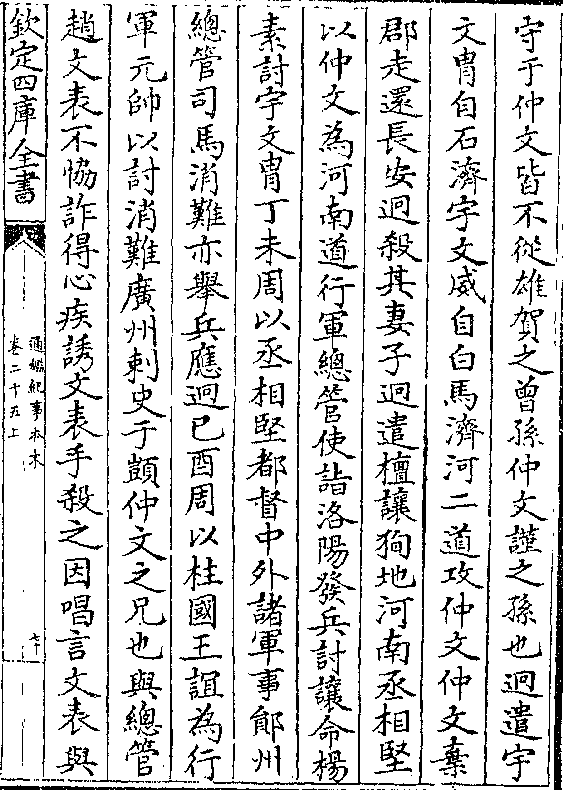 守于仲文皆不從雄賀之曾孫仲文謹之孫也迥遣宇
文胄自石濟宇文威自白馬濟河二道攻仲文仲文棄
郡走還長安迥殺其妻子迥遣檀讓狥地河南丞相堅
以仲文為河南道行軍總管使詣洛陽發兵討讓命楊
素討宇文胄丁未周以丞相堅都督中外諸軍事鄖州
總管司馬消難亦舉兵應迥己酉周以柱國王誼為行
軍元帥以討消難廣州刺史于顗仲文之兄也與總管
趙文表不恊詐得心疾誘文表手殺之因唱言文表與
欽定四庫全書
通鑑紀事本末
卷二十五上
七十